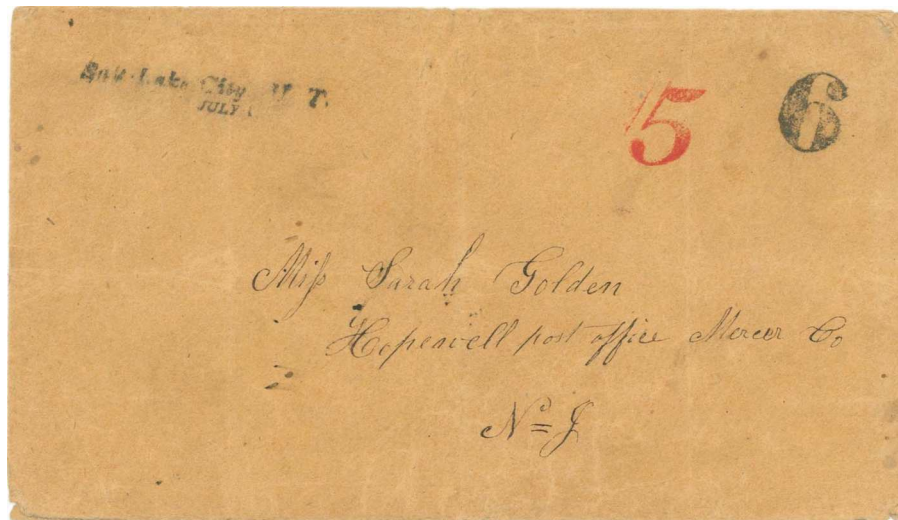 Salt-Lake City, U. T.
JULY
5 6
Miſs Sarah Golden
Hopewell post office Mercer Co
N J